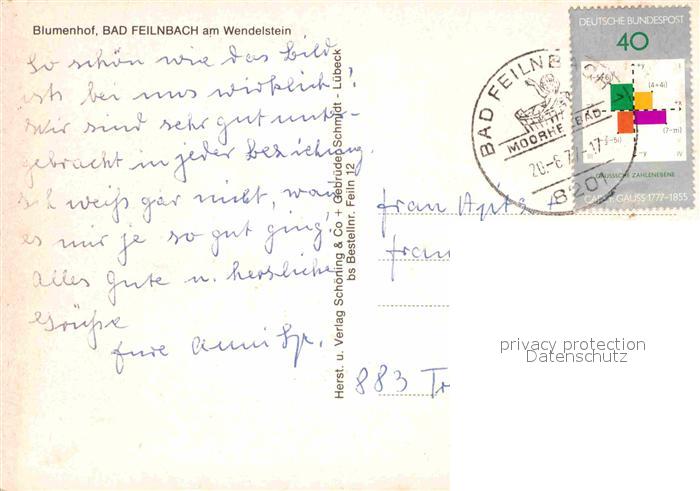 Blumenhof, BAD FEILNBACH am Wendelstein
So schön wie das Bild
ists bei uns wirklich!
Wir sind sehr gut unter-
gebracht in jeder Beziehung.
Ich weiß gar nicht, wann
es mir je so gut ging,
Alles Gute u. herzliche
Grüße
Eure Anni Sp.
Herst. u. Verlag Schöning & Co + Gebrüder Schmidt - Lübeck
bs Bestellnr. Feiln 12
BAD FEILNBACH
MOORHEILBAD
8201
DEUTSCHE BUNDESPOST
40
(4+4i)
GAUSSSCHE ZAHLENEBENE
CARL F. GAUSS 1777-1855
Frau
Frau
883 Tr
privacy protection
Datenschutz